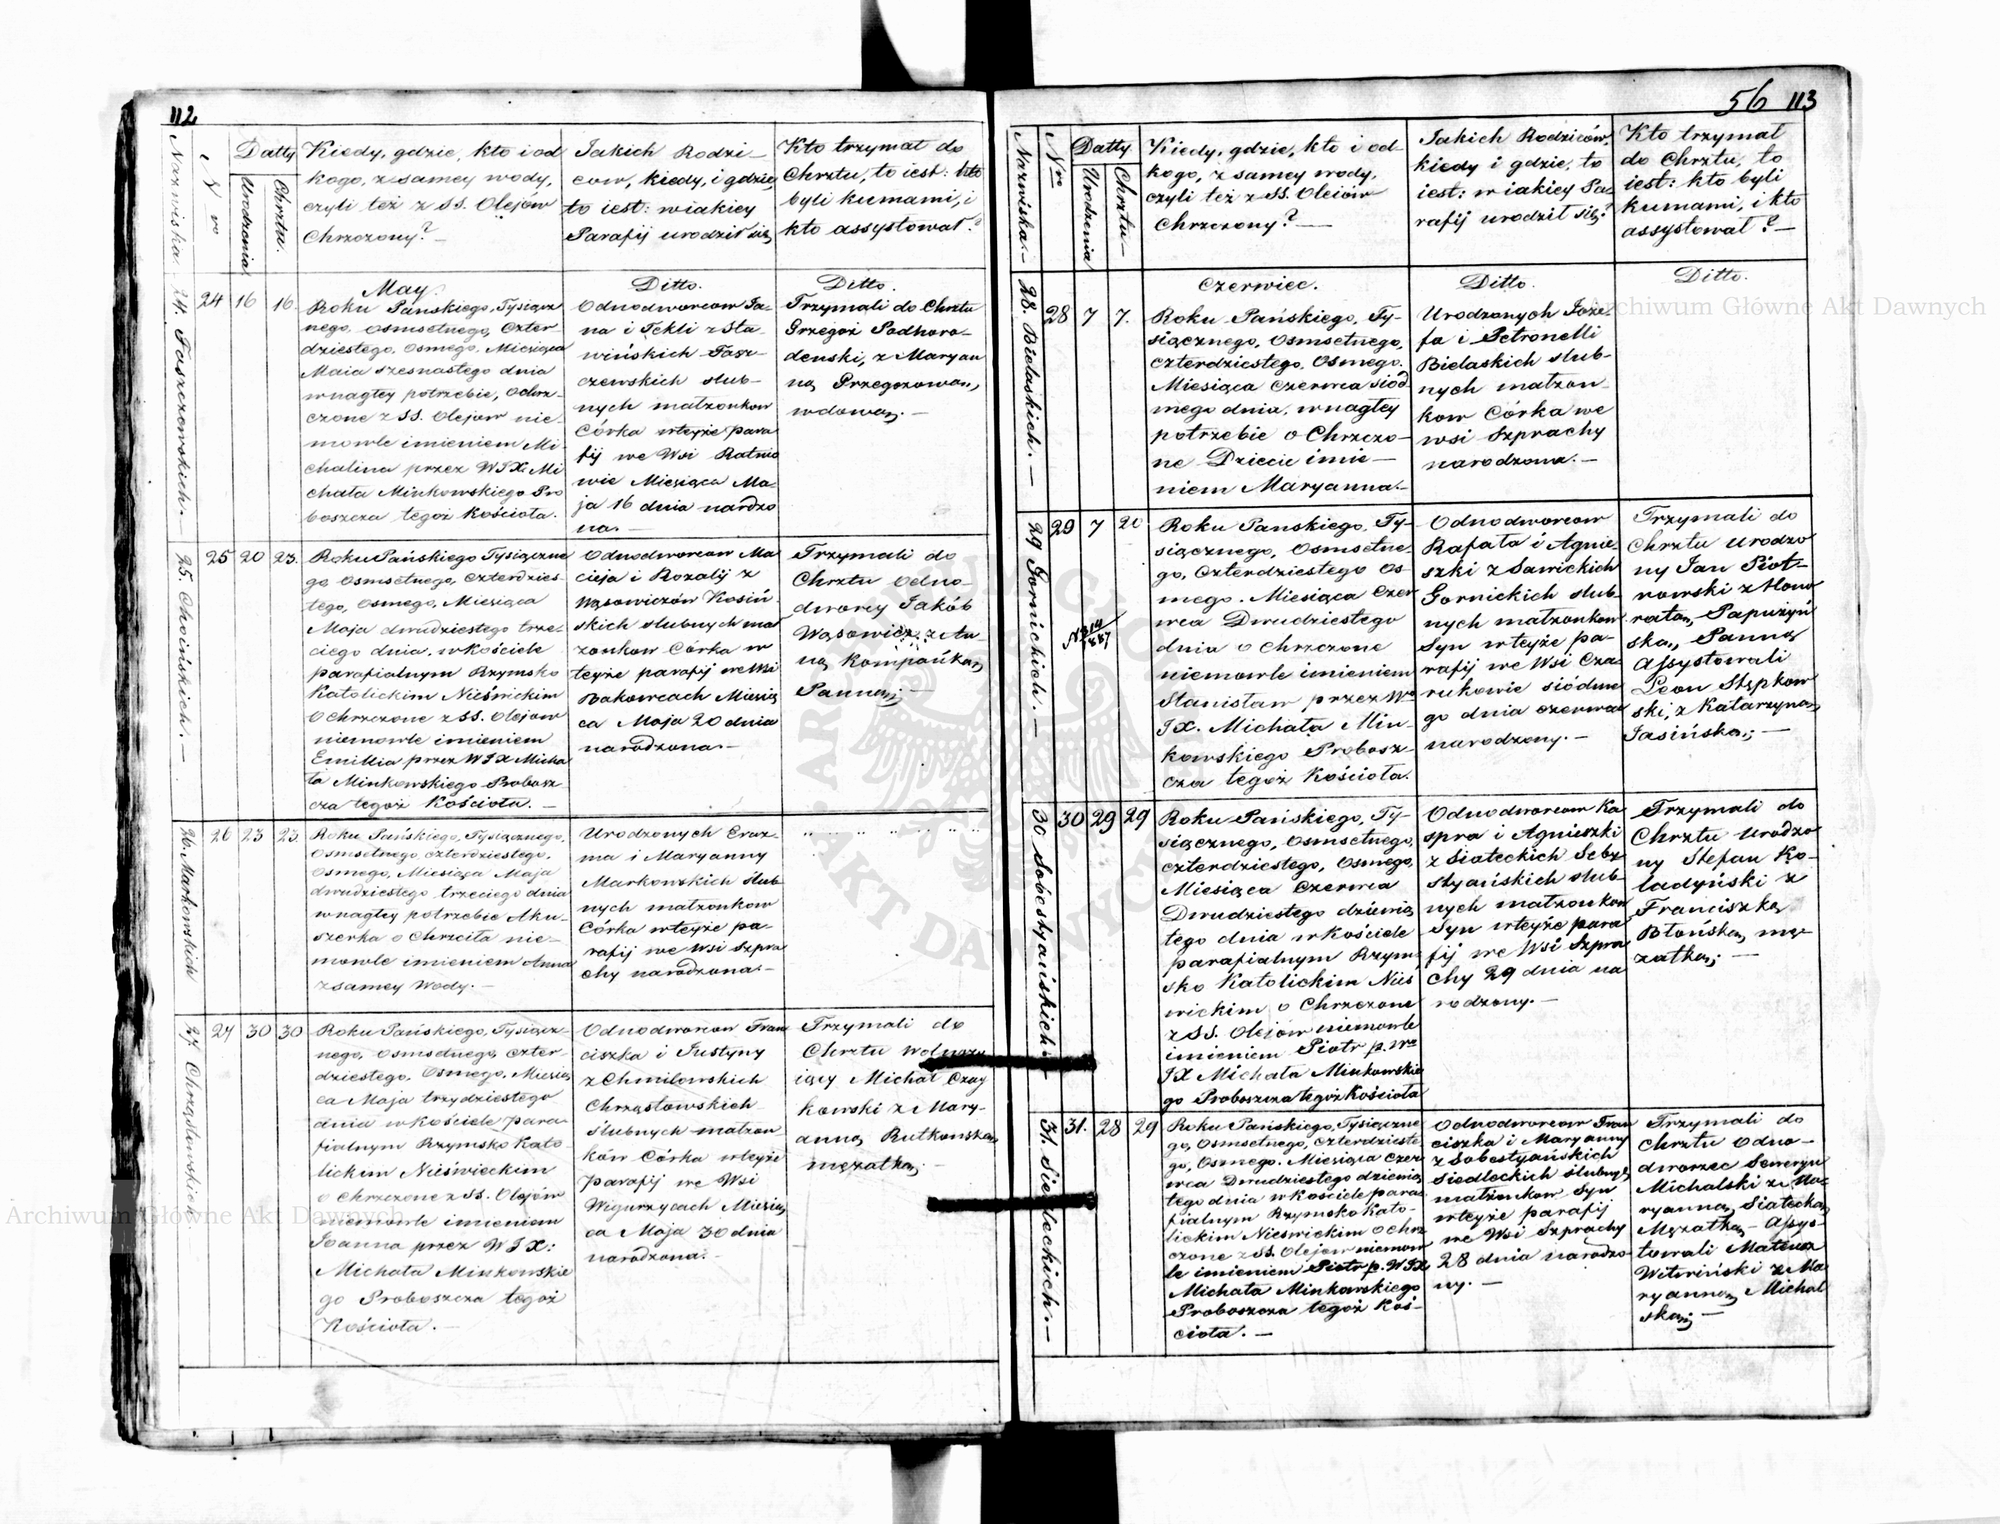 112
Nazwiska.
Nro
Datty
Urodzenia
Chrztu.
Kiedy, gdzie, kto i od
kogo, z samey wody,
czyli też z SS. Olejów
Chrzczony? —
Jakich Rodzi-
cow, kiedy, i gdzie,
to iest: w iakiey
Parafij urodził się,
Kto trzymał do
Chrztu, to iest: kto
byli kumami, i
kto assystował?
24. Faszczewskich. —
24
16
16.
May.
Roku Pańskiego, Tysiącz
nego, osmsetnego, czter
dziestego, osmego, Miesiąca
Maia szesnastego dnia
w nagłey potrzebie, ochrz-
czone z SS. Olejow nie-
mowle imieniem Mi-
chalina przez WJX. Mi
chała Minkowskiego Pro
boszcza tegoż Kościoła.
Ditto.
Odnodworcow Ja-
na i Tekli z Sta-
wińskich Fasz-
czewskich slub-
nych małzonkow
Córka w teyże para
fij we Wsi Ratnio
wie Miesiąca Ma-
ja 16 dnia nardzo
na. —
Ditto.
Trzymali do Chrztu
Grzegoż Podhoro-
denski, z Maryan
ną Przegorzowan,
wdową. —
25. Choińskich. —
25
20
23.
Roku Pańskiego Tysiączne
go, osmsetnego, czterdzies-
tego, osmego, Miesiąca
Moja dwudziestego trze-
ciego dnia, w kościele
parafialnym Rzymsko
Katolickim Nieświckim
ochrzczone z SS. Olejow
niemowle imieniem
Emillia przez WJX Micha
ła Minkowskiego Probosz
cza tegoż Kościoła. —
Odnodworcow Ma
cieja i Rozalij z
Wąsowiczów Kosiń
skich slubnych mał
zonkow Córka w
teyże parafij we Wsi
Bakowcach Miesią
ca Moja 20 dnia
narodzona. —
Trzymali do
Chrztu Odno-
dworcy Jakób
Wąsowicz z An-
ną Kompańką,
Panną; —
26. Markowskich
26
23
23.
Roku Pańskiego, Tysiącznego,
osmsetnego, czterdziestego,
osmego, Miesiąca Maja
dwudziestego trzeciego dnia
w nagłey potrzebie Aku-
szerka o Chrzciła nie-
mowle imieniem Anna
z samey Wody. —
Urodzonych Eraz-
ma i Maryanny
Markowskich ślub-
nych małzonkow
Córka w teyże pa-
rafij we Wsi Szpra
chy narodzona. —
27. Chrząstowskich
27
30
30
Roku Pańskiego, Tysiącz-
nego, osmsetnego, czter-
dziestego, osmego, Miesią
ca Moja trzydziestego
dnia w kościele para-
fialnym Rzymsko Kato-
lickim Nieświeckim
o chrzczone z SS. Olejów
niemowle imieniem
Joanna przez WJX:
Michała Minkowskie
go Proboszcza tegoż
Kościoła. —
Odnodworcow Fran
ciszka i Justyny
z Chmilowskich
Chrząstowskich
Ślubnych małzon-
ków Córka w teyże
Parafij we Wsi
Wigurzycach Miesią
ca Moja 30 dnia
narodzona. —
Trzymali do
Chrztu
Michał Czay
kowski z Mary-
anną Rutkowską
mężatką. —
56 113
Nazwiska. —
Nro
Datty
Urodzenia
Chrztu —
Kiedy, gdzie, kto i od-
kogo, z samey wody,
czyli też z SS. Oleiów
Chrzczony? —
Jakich Rodziców,
kiedy i gdzie, to
iest: w iakiey Pa-
rafij urodził się?
Kto trzymał
do Chrztu, to
iest: kto byli
kumami, i kto
assystował? —
28. Bielaskich. —
28
7
7.
Czerwiec.
Roku Pańskiego, Ty-
siącznego, Osmsetnego,
czterdziestego, Osmego.
Miesiąca Czerwca siód
mego dnia, w nagłey
potrzebie o Chrzczo-
ne Dziecie imie-
niem Maryanna. —
Ditto.
Urodzonych Joze-
fa i Petronelli
Bielaskich slub-
nych małzon-
kow Córka we
wsi Szprachy
narodzona. —
Ditto.
29 Gornickich. —
29
7
20
Roku Panskiego, Ty-
siącznego, Osmsetne-
go, czterdziestego Os-
mego. Miesiąca Czer
wca Dwudziestego
dnia o chrzczone
niemowle imieniem
Stanisław przez Wo
JX. Michała Min-
kowskiego Probosz-
cza tegoż Kościoła.
Odnodworcow
Rafała i Agnie-
szki z Sawickich
Gornickich slub-
nych małzonkow
Syn w teyże pa-
rafij we Wsi Cza-
rukowie siódme
go dnia czerwca
narodzony. —
Trzymali do
Chrztu Urodzo
ny Jan Piot-
rowski z Hono
ratą Papużyń
ską, Panną
Assystowali
Leon Stępkow
ski, z Katarzyną
Jasińską; —
30 Sobestyańskich. —
30
29
29
Roku Pańskiego, Ty-
siącznego, Osmsetnego,
czterdziestego, Osmego,
Miesiąca Czerwca
Dwudziestego dziewią
tego dnia w Kościele
parafialnym Rzym-
sko Katolickim Nieś
wickim o Chrzczone
z SS. Olejów niemowle
imieniem Piotr p. Wo
JX Michała Minkowskie
go Proboszcza tegoż Kościoła
Odnodworcow Ka
spra i Agnieszki
z Siateckich Sebe
styańskich slub-
nych małzonkow
Syn w teyże para
fij we Wsi Szpra
chy 29 dnia na
rodzony. —
Trzymali do
Chrztu Urodzo
ny Stefan Ko-
ladyński z
Franciszką
Błońską mę-
zatką; —
31. Siedleckich. —
31.
28
29
Roku Pańskiego, Tysiączne
go, Osmsetnego, Czterdzieste
go, Osmego. Miesiąca Czer
wca Dwudziestego dziewią
tego dnia w Kościele para-
fialnym Rzymsko Kato-
lickim Nieświckim o chrz
czone z SS. Olejow niemow
le imieniem Piotr p. WJX
Michała Minkowskiego
Proboszcza tegoż Koś-
cioła. —
Odnodworcow Fran
ciszka i Maryanny
z Sobestyańskich
Siedleckich slubnych
małzonkow Syn
w teyże parafij
we Wsi Szprachy
28 dnia narodzo
ny. —
Trzymali do
Chrztu Odno-
dworzec Seweryn
Michalski z Ma-
ryanną Siatecką
Mężatką — Assys-
towali Mateusz
Witwiński z Ma
ryanną Michal
ską; —
Archiwum Główne Akt Dawnych
Archiwum Główne Akt Dawnych
ARCHIWUM GŁÓWNE AKT DAWNYCH